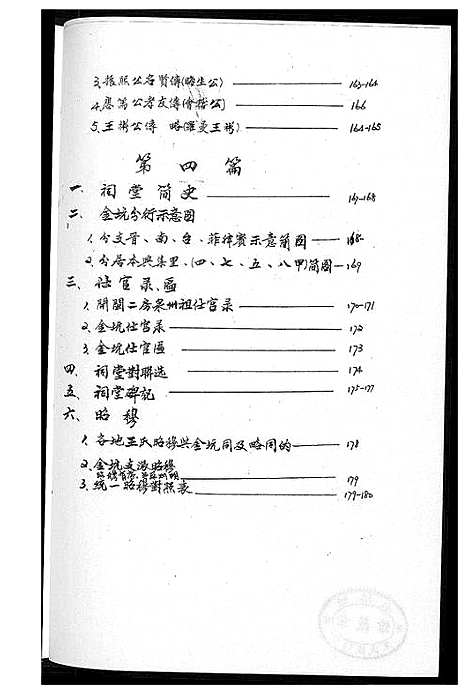 3.振熙公名贤傳(晦生公) 163-164
4.應萬公孝友傳(會楷公) 166
5.王彬公傳 略(羅曼王彬) 164-165
第四篇
一、祠堂简史 167-168
二、金坑分衍示意图
1.分支晋、南、台、菲律賓示意简图 168-
2.分居本興集里、(四、七、五、八甲)简图 169
三、仕官录、匾
1.開閩二房泉州祖仕官录 170-171
2.金坑仕官录 172
3.金坑仕官匾 173
四、祠堂對联选 174
五、祠堂碑記 175-177
六、昭穆
1.各地王氏昭穆與金坑同及略同的 178
2.金坑支派昭穆 179
3.統一昭穆對照表 179-180